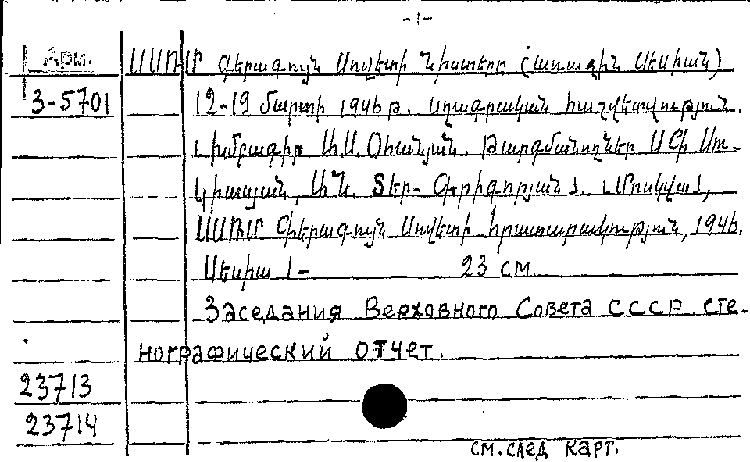 -1-
Арм. ՍՍՌՄ Գերագույն Սովետի Նիստերը (առաջին սեսիան)
3-5701 12-19 մարտի 1946թ. Սղագրական հաշվետվություն.
Խմբագիր Ա.Ս. Օհանյան. Թարգմանողներ Ս Գ
Ա.Ն. Տեր-Գրիգորյան և. Մոսկվա,
ՍՍՌՄ Գերագույն Սովետի հրատարակություն, 1946.
Սեսիա 1- 23 см
Заседания Верховного Совета СССР. сте-
нографический отчет.
23713
23714
см. след карт.